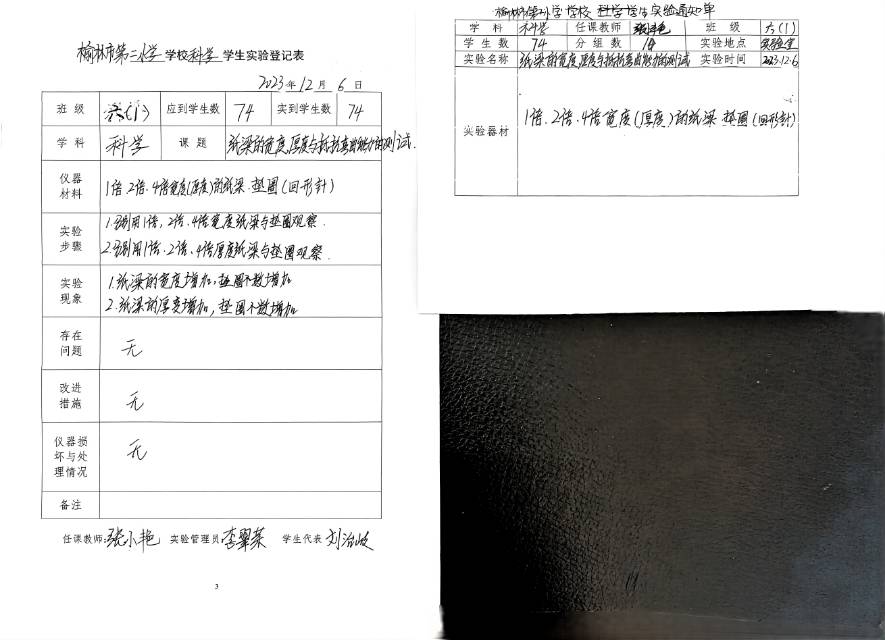 榆林市第二小学 学校 科学 学生实验登记表
2023 年 12 月 6 日
班 级 六(1) 应到学生数 74 实到学生数 74
学 科 科学 课 题 纸梁的宽度、厚度与抗弯曲能力的测试.
仪器材料 1倍、2倍、4倍宽度(厚度)的纸梁. 垫圈(回形针)
实验步骤 1.分别用1倍,2倍、4倍宽度纸梁与垫圈观察.
2.分别用1倍、2倍、4倍厚度纸梁与垫圈观察.
实验现象 1.纸梁的宽度增加,垫圈个数增加
2.纸梁的厚度增加,垫圈个数增加
存在问题 无
改进措施 无
仪器损坏与处理情况 无
备注
任课教师:张小艳 实验管理员:李翠荣 学生代表 刘治岐
3
榆林市第二小学 学校 科学 学生实验通知单
学 科 科学 任课教师 张小艳 班 级 六(1)
学 生 数 74 分 组 数 实验地点 实验室
实验名称 纸梁的宽度、厚度与抗弯曲能力的测试 实验时间 2023.12.6
实验器材 1倍、2倍、4倍宽度(厚度)的纸梁 垫圈(回形针)